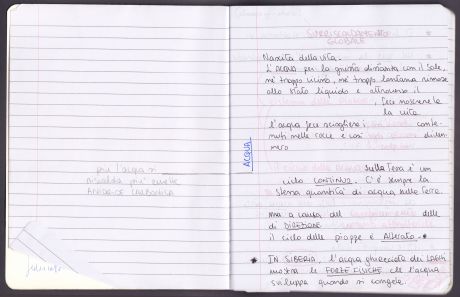 più l'acqua si
riscalda più emette
ANIDRIDE CARBONICA
SURRISCALDAMENTO
GLOBALE
Nascita della vita.
L'ACQUA per la giusta distanza con il Sole,
né troppo vicino, né troppo lontana rimase
allo stato liquido e attraverso il
, fece nascere la
la vita.
l'acqua fece sciogliere i conte-
nuti nelle rocce e così diven-
nero
ACQUA
sulla Terra è un
ciclo CONTINUO. C'è sempre la
stessa quantità di acqua sulla Terra.
ma a causa del delle
di
il ciclo delle piogge è Alterato.
* IN SIBERIA, l'acqua ghiacciata dei LAGHI
mostra le FORZE FISICHE che l'acqua
sviluppa quando si congela.